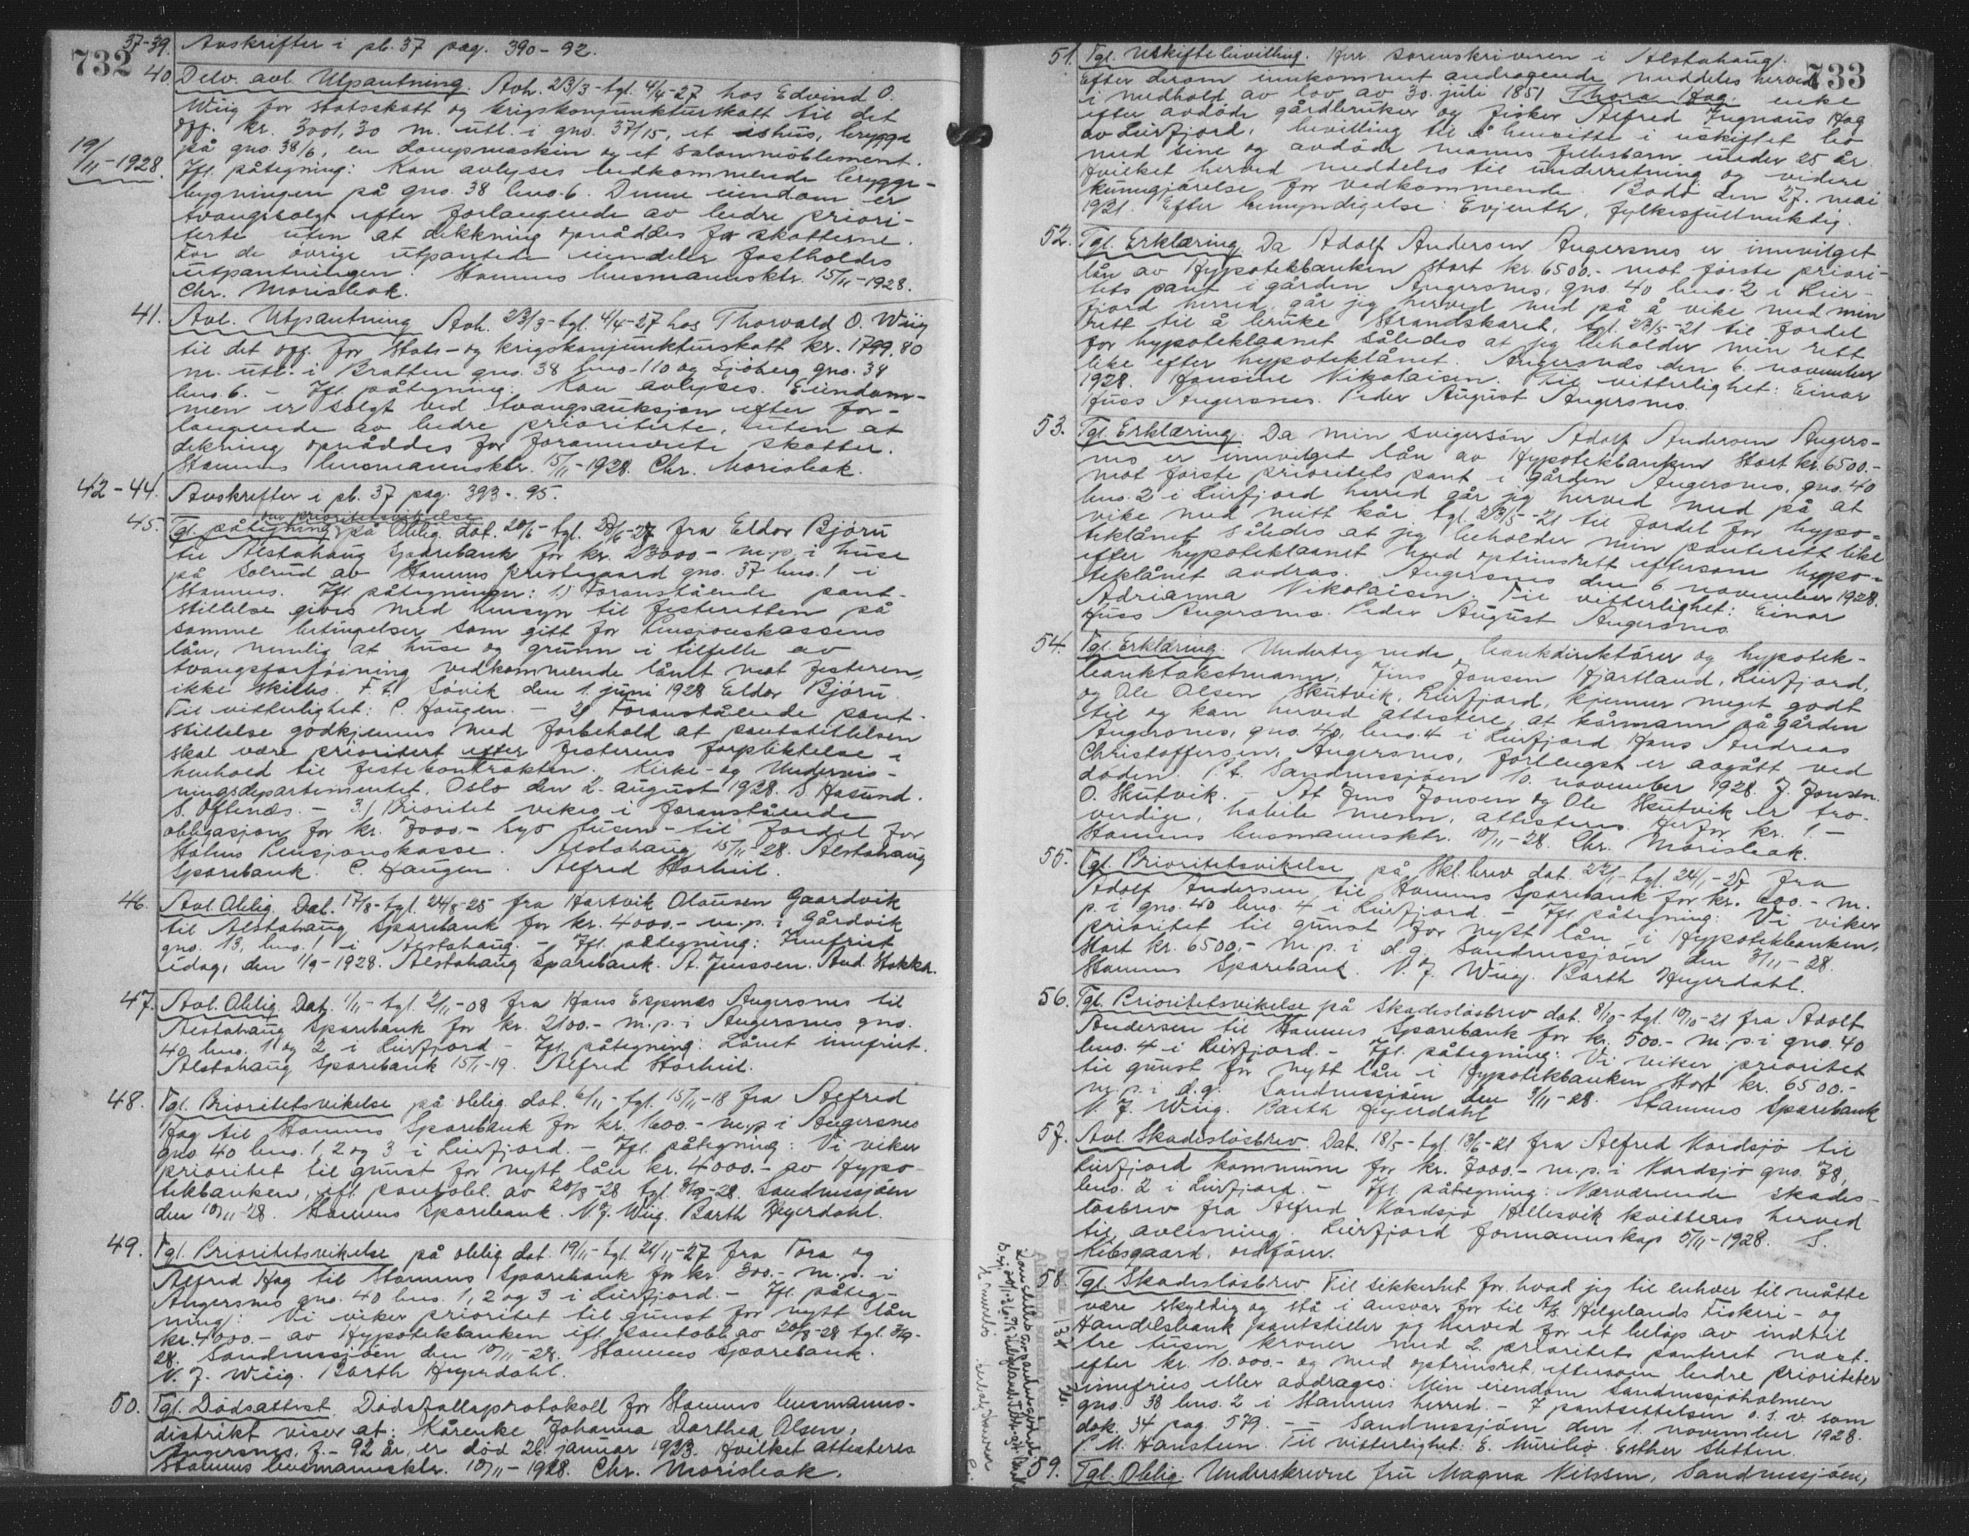 732
37-39. Avskrifter i pb. 37 pag. 390-92.
40. Delv. avl. Utpantning. Avh. 23/3 - tgl. 4/4-27 hos Edvind O.
Wiig for statsskatt og krigskonjunkturskatt til det
off. kr. 3001,30 m. utl. i gno. 37/15, et hus, brygge
på gno. 38/6, en dampmaskin og et salonmöblement.
19/11-1928. Ifl. påtegning: Kan avlyses vedkommende brygge-
bygningen på gno. 38 bno. 6. Denne eiendom er
tvangssolgt efter forlangende av bedre priori-
terte uten at dekkning opnåddes for skatterne.
For de övrige utpantede eiendeler fastholdes
utpantningen. Stamnes lensmannsktr. 15/11-1928.
Chr. Morisbak.
41. Avl. Utpantning Avh. 23/3 - tgl. 4/4-27 hos Thorvald O. Wiig
til det off. for stats- og krigskonjunkturskatt kr. 1799,80
m. utl. i Bratten gno. 38 bno. 110 og Sjöberg gno. 34
bno. 6. - Ifl. påtegning: Kan avlyses. Eiendom-
men er solgt ved tvangsauksjon efter for-
langende av bedre prioriterte, uten at
dekning opnåddes for forannevnte skatter.
Stamnes lensmannsktr. 15/11-1928. Chr. Morisbak.
42-44. Avskrifter i pb. 37 pag. 393-95.
om prioritetsvikelse
45. Tgl. påtegning på Oblig. dat. 20/6 - tgl. 22/6-27 fra Eldor Björu
til Alstahaug Sparebank for kr. 23000 - m. p. i huse
på Solrud av Stamnes prestegaard gno. 37 bno. 1 i
Stamnes. Ifl. påtegninger: 1) Foranstående pant-
stillelse gives med hensyn til festeretten på
samme betingelser som gitt for Pensjonskassens
lån, nemlig at huse og grunn i tilfelle av
tvangsforföining vedkommende lånet mot festeren,
ikke skilles. F. t. Sövik den 1. juni 1928 Eldor Björu.
Til vitterlighet: C. Haugen. - 2) Foranstående pant-
stillelse godkjennes med forbehold at pantstillelsen
skal være prioritert efter festerens forpliktelse i
henhold til festekontrakten. Kirke- og Undervis-
ningsdepartementet, Oslo den 2. august 1928. S. Hasund.
S. Oftenæs. - 3.) Prioritet vikes i foranstående
obligasjon for kr. 7000.- Syv tusen - til fordel for
Statens Pensjonskasse. Alstahaug 15/11-28. Alstahaug
Sparebank. C. Haugen. Alfred Storheil.
46. Avl. Oblig. Dat. 17/8 - tgl. 24/8-25 fra Hartvik Olausen Gaardvik
til Alstahaug Sparebank for kr. 4000.- m. p. i Gårdvik
gno. 13, bno. 1 i Alstahaug. - Ifl. påtegning: Innfriet
idag, den 1/9-1928. Alstahaug Sparebank. A. Jenssen. And. Stokka.
47. Avl. Oblig. Dat. 1/11 - tgl. 2/11-08 fra Hans Espenes Angersnes til
Alstahaug Sparebank for kr. 2100.- m. p. i Angersnes gno.
40 bno. 1 og 2 i Leirfjord. - Ifl. påtegning: Lånet innfriet.
Alstahaug Sparebank 15/1-19. Alfred Storheil.
48. Tgl. Prioritetsvikelse på oblig. dat. 6/11 - tgl. 15/11-18 fra Alfred
Hag til Stamnes Sparebank for kr. 1600.- m. p. i Angersnes
gno. 40 bno. 1, 2 og 3 i Leirfjord. - Ifl. påtegning: Vi viker
prioritet til gunst for nytt lån kr. 4000.- av Hypo-
tekbanken, ifl. pantobl. av 20/8-28 tgl. 3/9-28. Sandnessjöen
den 10/11-28. Stamnes Sparebank. N. J. Wiig. Barth Heyerdahl.
49. Tgl. Prioritetsvikelse på oblig. dat. 19/11 - tgl. 21/11-27 fra Tora og
Alfred Hag til Stamnes Sparebank for kr. 300.- m. p. i
Angersnes gno. 40 bno. 1, 2 og 3 i Leirfjord. - Ifl. påteg-
ning: Vi viker prioritet til gunst for nytt lån
kr. 4000.- av Hypotekbanken ifl. pantobl. av 20/8-28 tgl. 3/9-
28. Sandnessjöen den 10/11-28. Stamnes Sparebank.
N. J. Wiig. Barth Heyerdahl.
50. Tgl. Dödsattest. Dödsfallsprotokoll for Stamnes lensmanns-
distrikt viser at: Kårenke Johanna Dorthea Olsen,
Angersnes, f. - 92 år, er död 26. januar 1923. Hvilket attesteres
Stamnes lensmannsktr. 10/11-1928. Chr. Morisbak.
733
51. Tgl. Uskiftebevilling. Herr sorenskriveren i Alstahaug.
Efter derom innkommet andragende meddeles herved
i medhold av lov av 30. juli 1851 Thora Hag, enke
efter avdöde gårdbruker og fisker Alfred Hag
av Leirfjord, bevilling til å hensitte i uskiftet bo
med sine og avdöde manns fellesbarn under 25 år.
Hvilket herved meddeles til underretning og videre
kunngjörelse for vedkommende. Bodö den 27. mai
1921. Efter bemyndigelse: Evjenth, fylkesfullmektig.
52. Tgl. Erklæring. Da Adolf Andersen Angersnes er innvilget
lån av Hypotekbanken stort kr. 6500.- mot förste priori-
tets pant i gården Angersnes, gno. 40 bno. 2 i Leir-
fjord herred, går jeg herved med på å vike med min
rett til å bruke Strandskaret, tgl. 23/5-21 til fordel
for hypoteklaanet således at jeg beholder min rett
like efter hypoteklånet. Angersnes den 6. november
1928. Hansine Nikolaisen. Til vitterlighet: Einar
Juss Angersnes. Peder August Angersnes.
53. Tgl. Erklæring. Da min svigersön Adolf Andersen Angers-
nes er innvilget lån av Hypotekbanken stort kr. 6500.-
mot förste prioritets pant i gården Angersnes, gno. 40
bno. 2 i Leirfjord herred går jeg herved med på at
vike med mitt kår tgl. 23/5-21 til fordel for hypo-
teklånet således at jeg beholder min panterett like
efter hypoteklaanet med optrinsrett eftersom hypo-
teklånet avdras. Angersnes den 6 november 1928.
Adrianna Nikolaisen. Til vitterlighet: Einar
Juss Angersnes. Peder August Angersnes.
54. Tgl. Erklæring. Undertegnede bankdirektörer og hypotek-
banktakstmann, Jens Jonsen Hjartland, Leirfjord,
og Ole Olsen Skutvik, Leirfjord, kjenner meget godt
til og kan herved attestere, at kårmann på gården
Angersnes, gno. 40, bno. 4 i Leirfjord Hans Andreas
Christoffersen, Angersnes, forlengst er avgått ved
döden. P. t. Sandnessjöen 10. november 1928. J. Jonsen.
O. Skutvik. - At Jens Jonsen og Ole Skutvik er tro-
verdige, habile menn, attesteres. Herfor kr. 1.-
Stamnes lensmannsktr. 10/11-28. Chr. Morisbak.
55. Tgl. Prioritetsvikelse på Skl.brev dat. 22/1 - tgl. 24/1-27 fra
Adolf Andersen til Stamnes Sparebank for kr. 600.- m.
p. i gno. 40 bno. 4 i Leirfjord. - Ifl. påtegning: Vi viker
prioritet til gunst for nytt lån i Hypotekbanken,
stort kr. 6500.- m. p. i d. g. Sandnessjöen den 9/11-28.
Stamnes Sparebank N. J. Wiig. Barth Heyerdahl.
56. Tgl. Prioritetsvikelse på Skadeslösbrev dat. 8/10 - tgl. 10/10-21 fra Adolf
Andersen til Stamnes Sparebank for kr. 500.- m. p. i gno. 40
bno. 4 i Leirfjord. - Ifl. påtegning: Vi viker prioritet
til gunst for nytt lån i Hypotekbanken stort kr. 6500.-
m. p. i d. g. Sandnessjöen den 9/11-28. Stamnes Sparebank
N. J. Wiig. Barth Heyerdahl
57. Avl. Skadeslösbrev. Dat. 18/5 - tgl. 13/6-21 fra Alfred Kordsjö til
Leirfjord kommune for kr. 7000.- m. p. i Kordsjö gno. 78,
bno. 2 i Leirfjord. - Ifl. påtegning: Nærværende skades-
lösbrev fra Alfred Kordsjö Hellesvik kvitteres herved
til avlesning. Leirfjord formannskap 5/11-1928. S.
Kibsgaard, ordförer.
58. Tgl. Skadeslösbrev. Til sikkerhet for hvad jeg til enhver til måtte
være skyldig og stå i ansvar for til A/S Helgelands Fiskeri- og
Handelsbank pantstiller jeg herved for et belöp av indtil
tre tusen kroner med 2. prioritets panteret næst
efter kr. 10.000.- og med optrinsret eftersom bedre prioriteter
innfries eller avdrages: Min eiendom Sandnessjöholmen
gno. 38 bno. 2 i Stamnes herred. - I pantsettelsen o. s. v. som
dok. 34 pag. 579. - - Sandnessjöen den 1. november 1928.
P. M. Hanstein. Til vitterlighet: E. Murebö. Esther Sletten.
59. Tgl. Oblig. Underskrevne fru Magna Nilssen, Sandnessjöen,